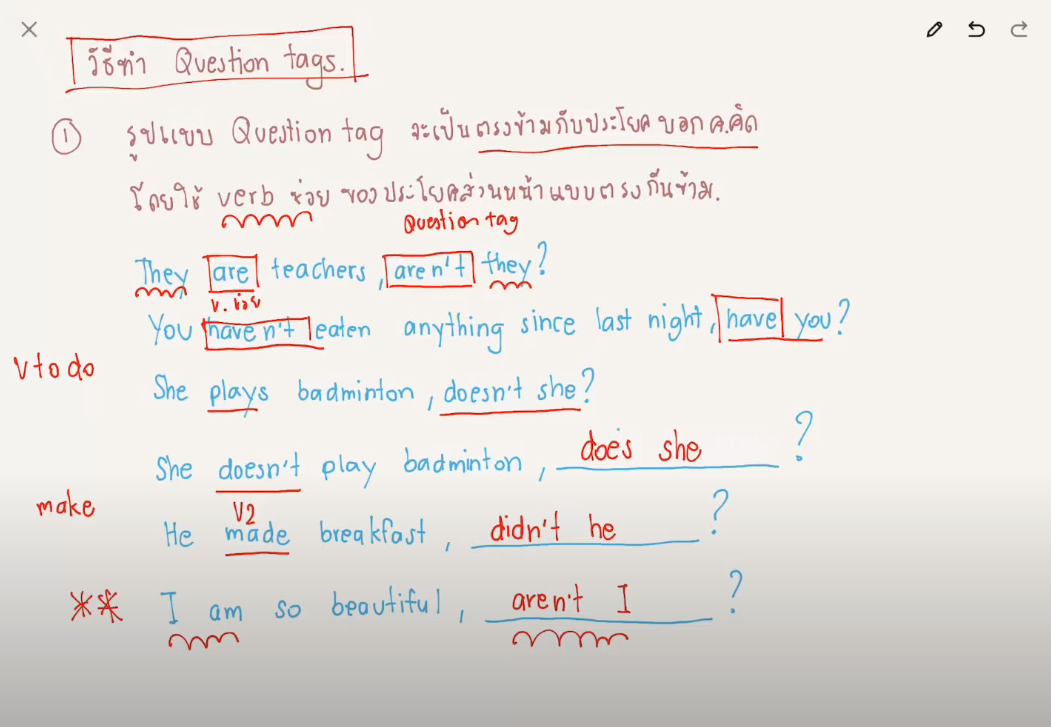 วิธีทำ Question tags.
① รูปแบบ Question tag จะเป็นตรงข้ามกับประโยคบอก ค.คิด
โดยใช้ verb ช่วย ของประโยคส่วนหน้าแบบตรงกันข้าม.
Question tag
They are teachers, aren't they?
v. ช่วย
You haven't eaten anything since last night, have you?
V to do
She plays badminton, doesn't she?
She doesn't play badminton, does she?
make
V2
He made breakfast, didn't he?
** I am so beautiful, aren't I?